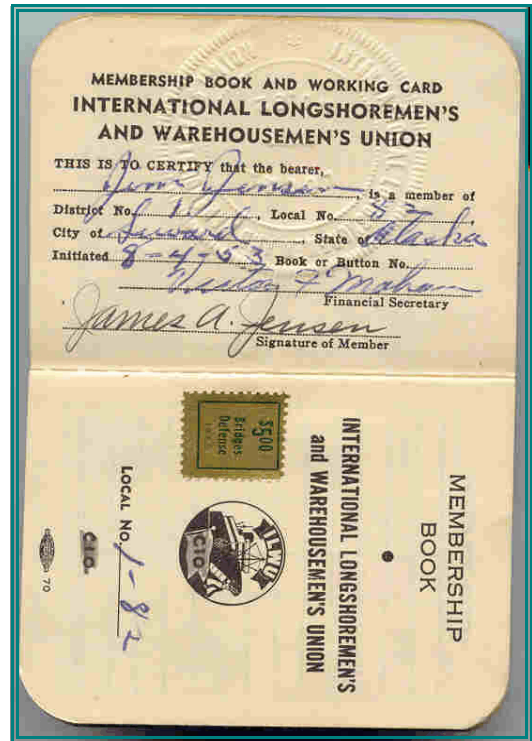 MEMBERSHIP BOOK AND WORKING CARD
INTERNATIONAL LONGSHOREMEN'S
AND WAREHOUSEMEN'S UNION
THIS IS TO CERTIFY that the bearer,
Jim Jensen, is a member of
District No. 1, Local No. 82
City of Seward, State of Alaska
Initiated 8-4-53 Book or Button No.
Financial Secretary
James A. Jensen
Signature of Member
MEMBERSHIP
BOOK
INTERNATIONAL LONGSHOREMEN'S
and WAREHOUSEMEN'S UNION
$5.00
Bridges
Defense
ILWU
CIO
LOCAL NO. 1-82
C.I.O.
70